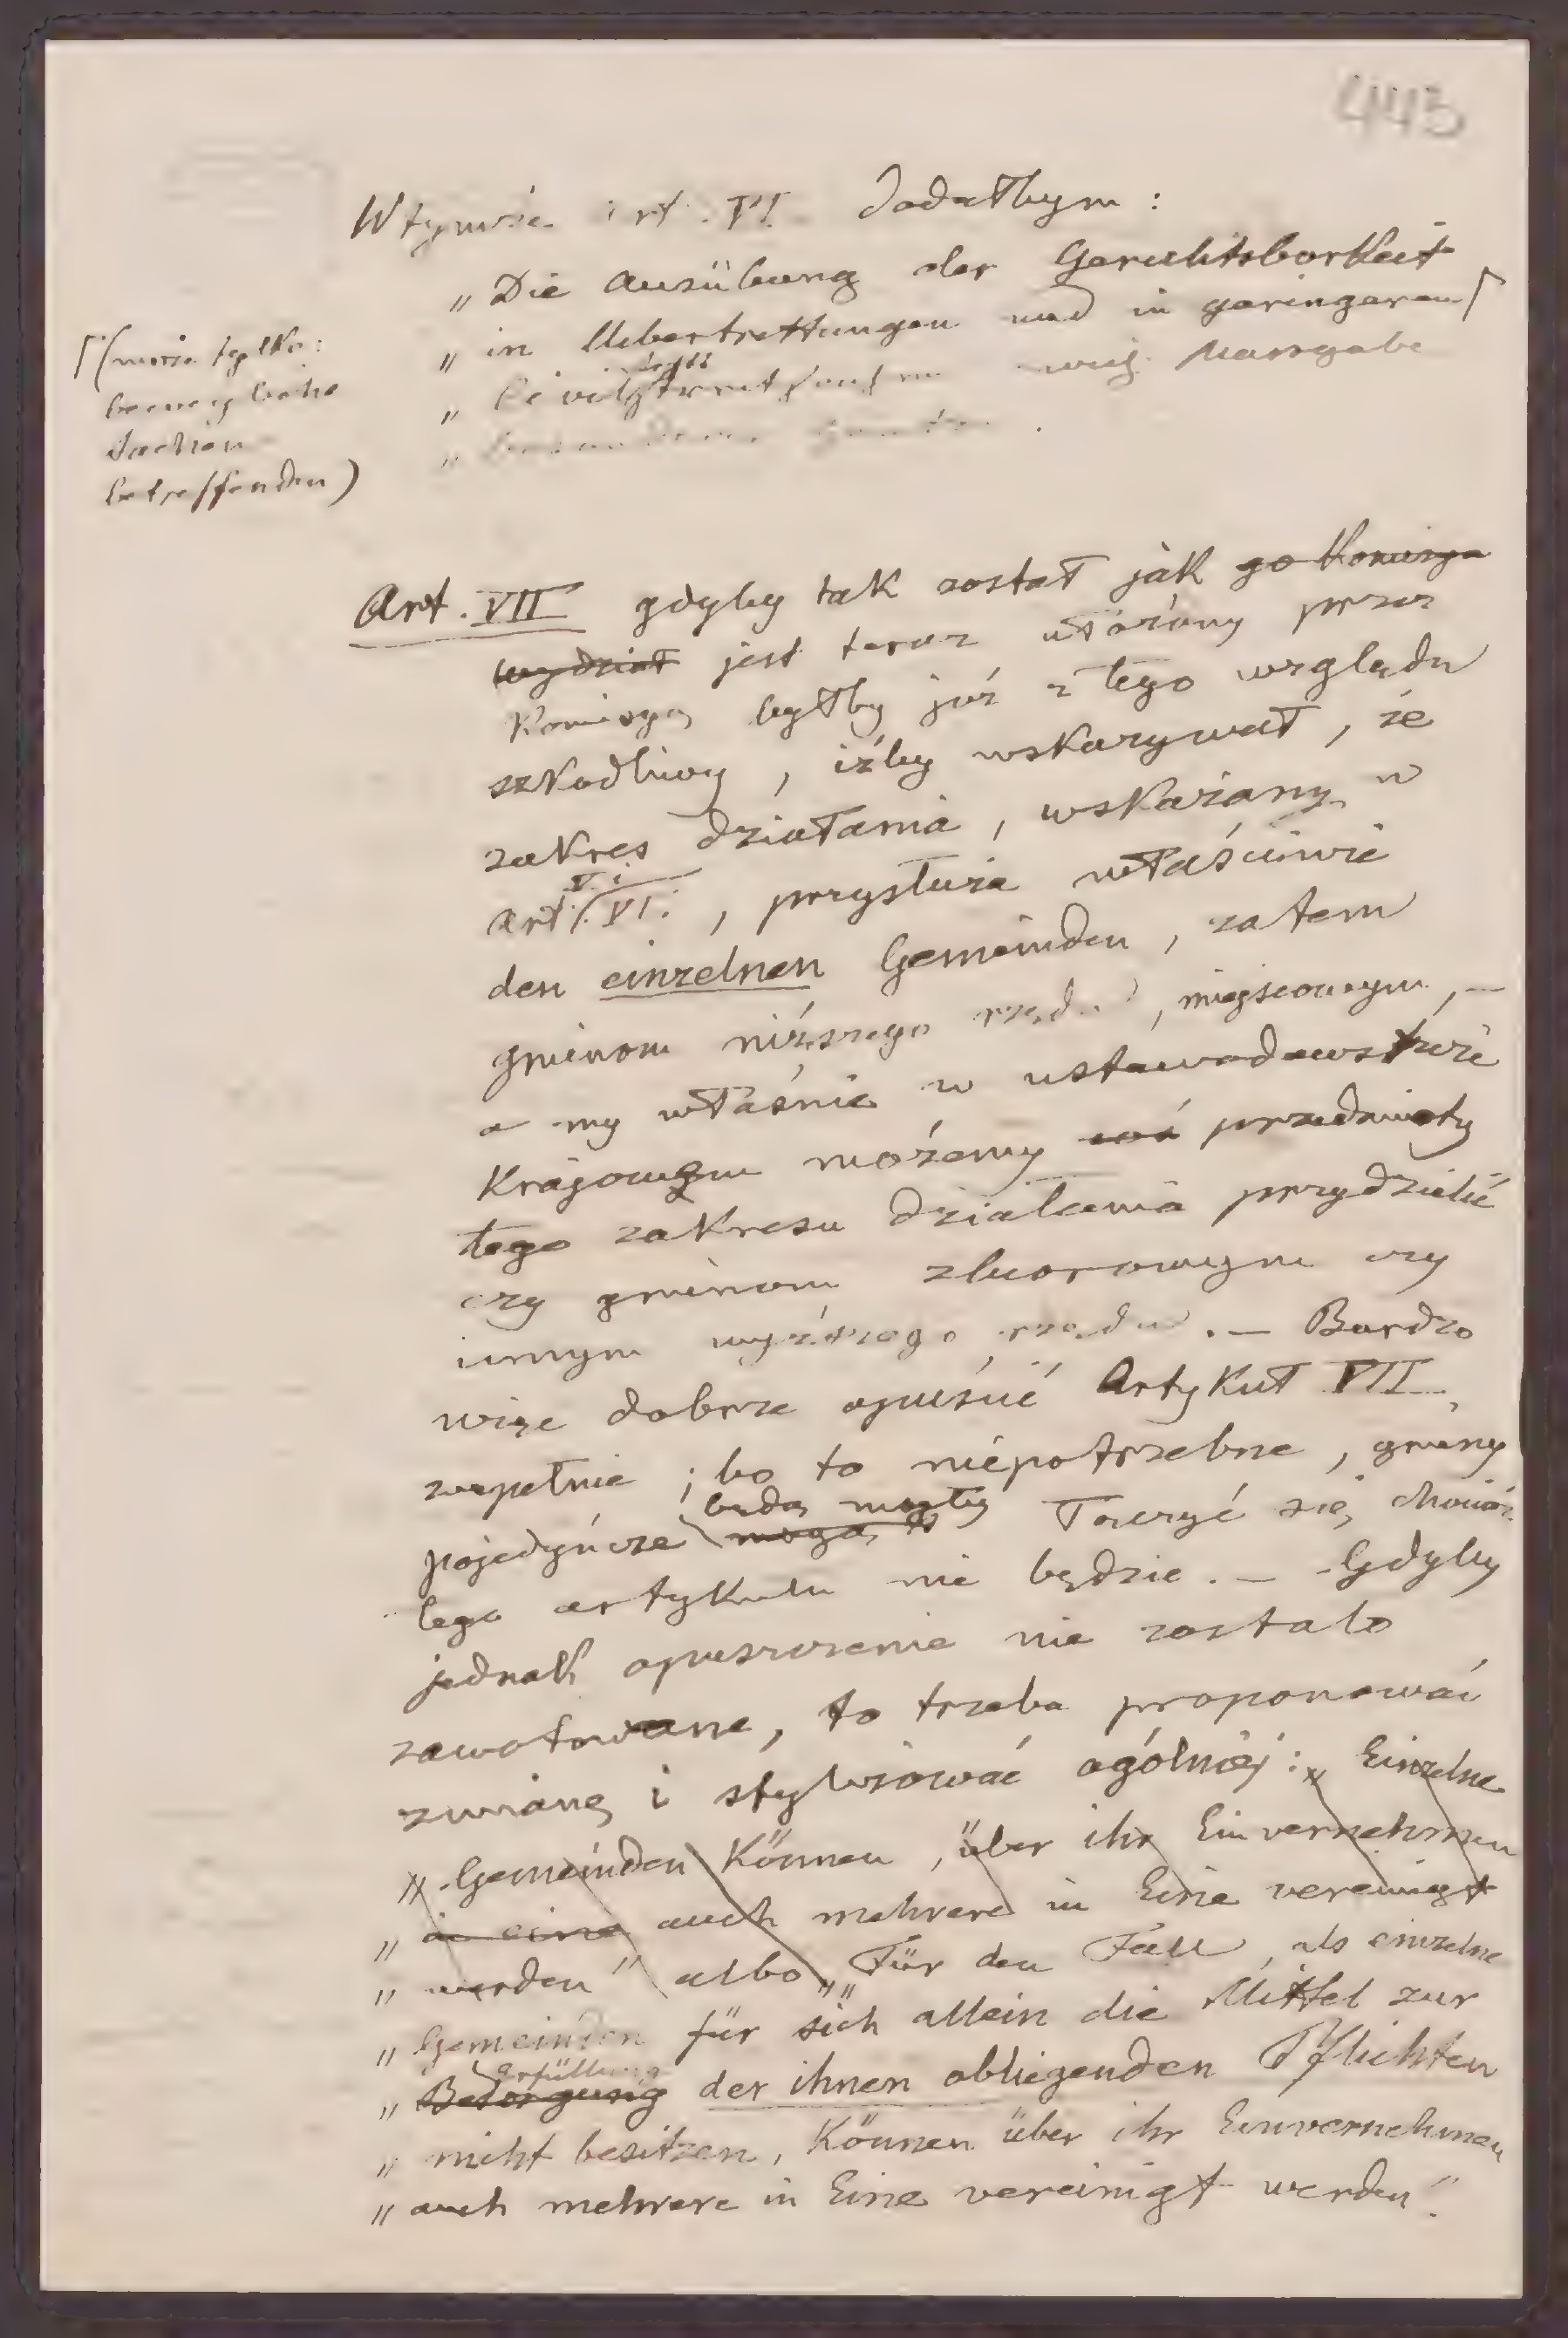 443
W tymże art. VI dodałbym:
„Die Ausübung der Gerichtsbarkeit
„in Uebertrettungen und in geringeren ⌈
„Civil streitsachen Massgabe
„
⌈(może tylko:
bewegliche
Sachen
betreffenden)
Art. VII gdyby tak został jak go Komisya
wydział jest teraz ułożony przez
Komisyą byłby już z tego względu
szkodliwy, iżby wskazywał, że
zakres działania, wskazany w
Art. V. i VI., przysłuża właściwie
den einzelnen Gemeinden, zatem
gminom niższego rzędu, miejscowym, –
a my właśnie w ustawodawstwie
Krajowym możemy przedmioty
tego zakresu działania przydzielić
czy gminom zbiorowym czy
innym wyższego rzędu. – Bardzo
więc dobrze opuścić Artykuł VII
zupełnie, bo to niepotrzebne, gminy
pojedyńcze mogą będą mogły łączyć się, chociaż
tego artykułu nie będzie. – Gdyby
jednak opuszczenie nie zostało
zawotowane, to trzeba proponować
zmianę i stylizować ogólniej: „Einzelne
„Gemeinden Können, über ihr Einvernehmen
„in eine auch mehrere in Eine vereinigt
„werden" albo „Für den Fall, als einzelne
„Gemeinden für sich allein die Mittel zur
„Besorgung Erfüllung der ihnen obliegenden Pflichten
„nicht besitzen, Können über ihr Einvernehmen
„auch mehrere in Eine vereinigt werden".